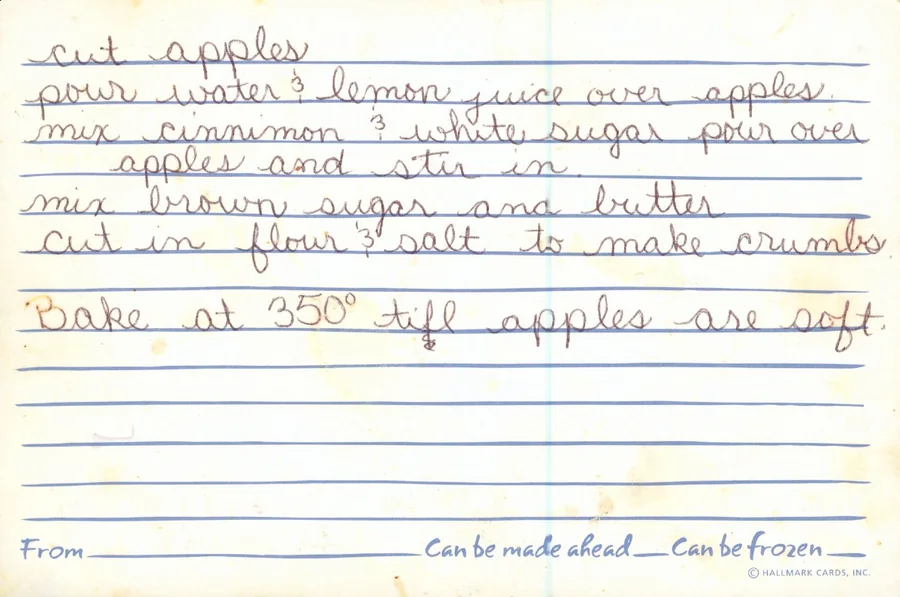 cut apples
pour water & lemon juice over apples.
mix cinnimon & white sugar pour over
apples and stir in.
mix brown sugar and butter
cut in flour & salt to make crumbs.
Bake at 350° till apples are soft.
From Can be made ahead Can be frozen
© HALLMARK CARDS, INC.